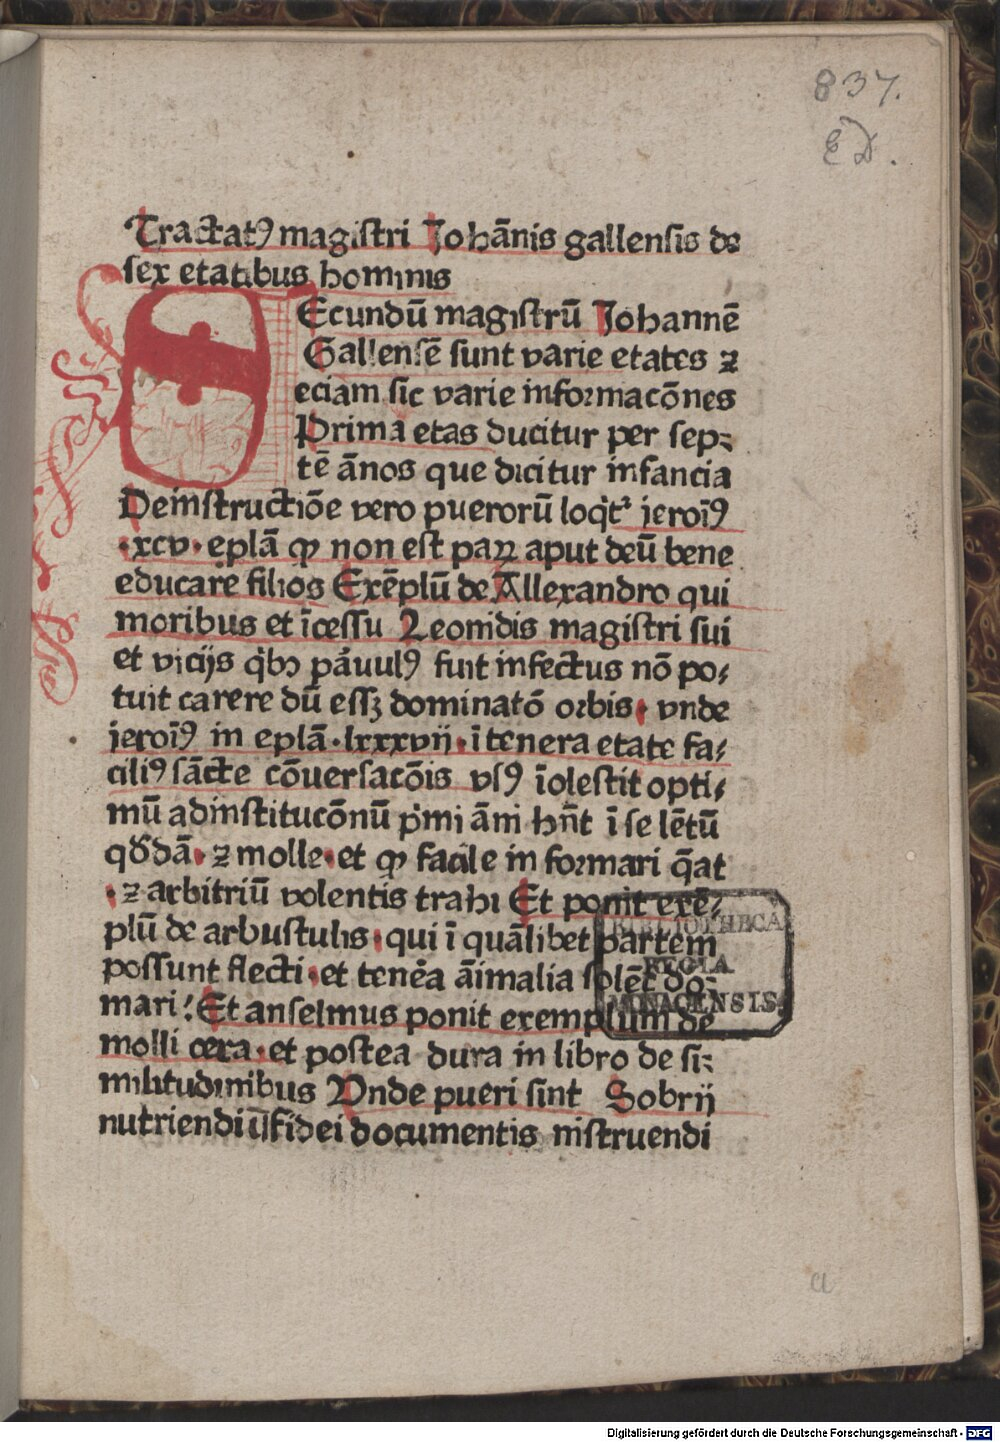 837.
ED.
Tractatꝰ magistri Johānis gallensis de
sex etatibus hominis
SEcundū magistrū Johannē
Gallensē sunt varie etates ⁊
eciam sic varie informacōnes
Prima etas ducitur per sep⸗
tē ānos que dicitur infancia
De instructiōe vero puerorū loqͥtᷣ ieroīꝰ
·xcv· eplā ꝙ non est paꝝ aput deū bene
educare filios Exēplū de Allexandro qui
moribus et īcessu Leonidis magistri sui
et vicijs qͥbꝫ paͣuulꝰ fuit infectus nō po⸗
tuit carere dū essꝫ dominatō orbis· vnde
ieroīꝰ in eplā ·lxxxvij· ī tenera etate fa⸗
ciliꝰ sācte cōuersacōis vsꝰ īolestit opti⸗
mū ad institucōnū pͥmi āni hn̄t ī se lētū
qd̄dā· ⁊ molle· et ꝙ facile in formari q̄at
· ⁊ arbitriū volentis trahi Et ponit exē⸗
plū de arbustulis· qui ī quālibet partem
possunt flecti· et tenēa āimalia solēt do⸗
mari: Et anselmus ponit exemplum de
molli cera· et postea dura in libro de si⸗
militudinibus Vnde pueri sint Sobrij
nutriendi ī fidei documentis instruendi
BIBLIOTHECA
REGIA
MONACENSIS
a
Digitalisierung gefördert durch die Deutsche Forschungsgemeinschaft - DFG